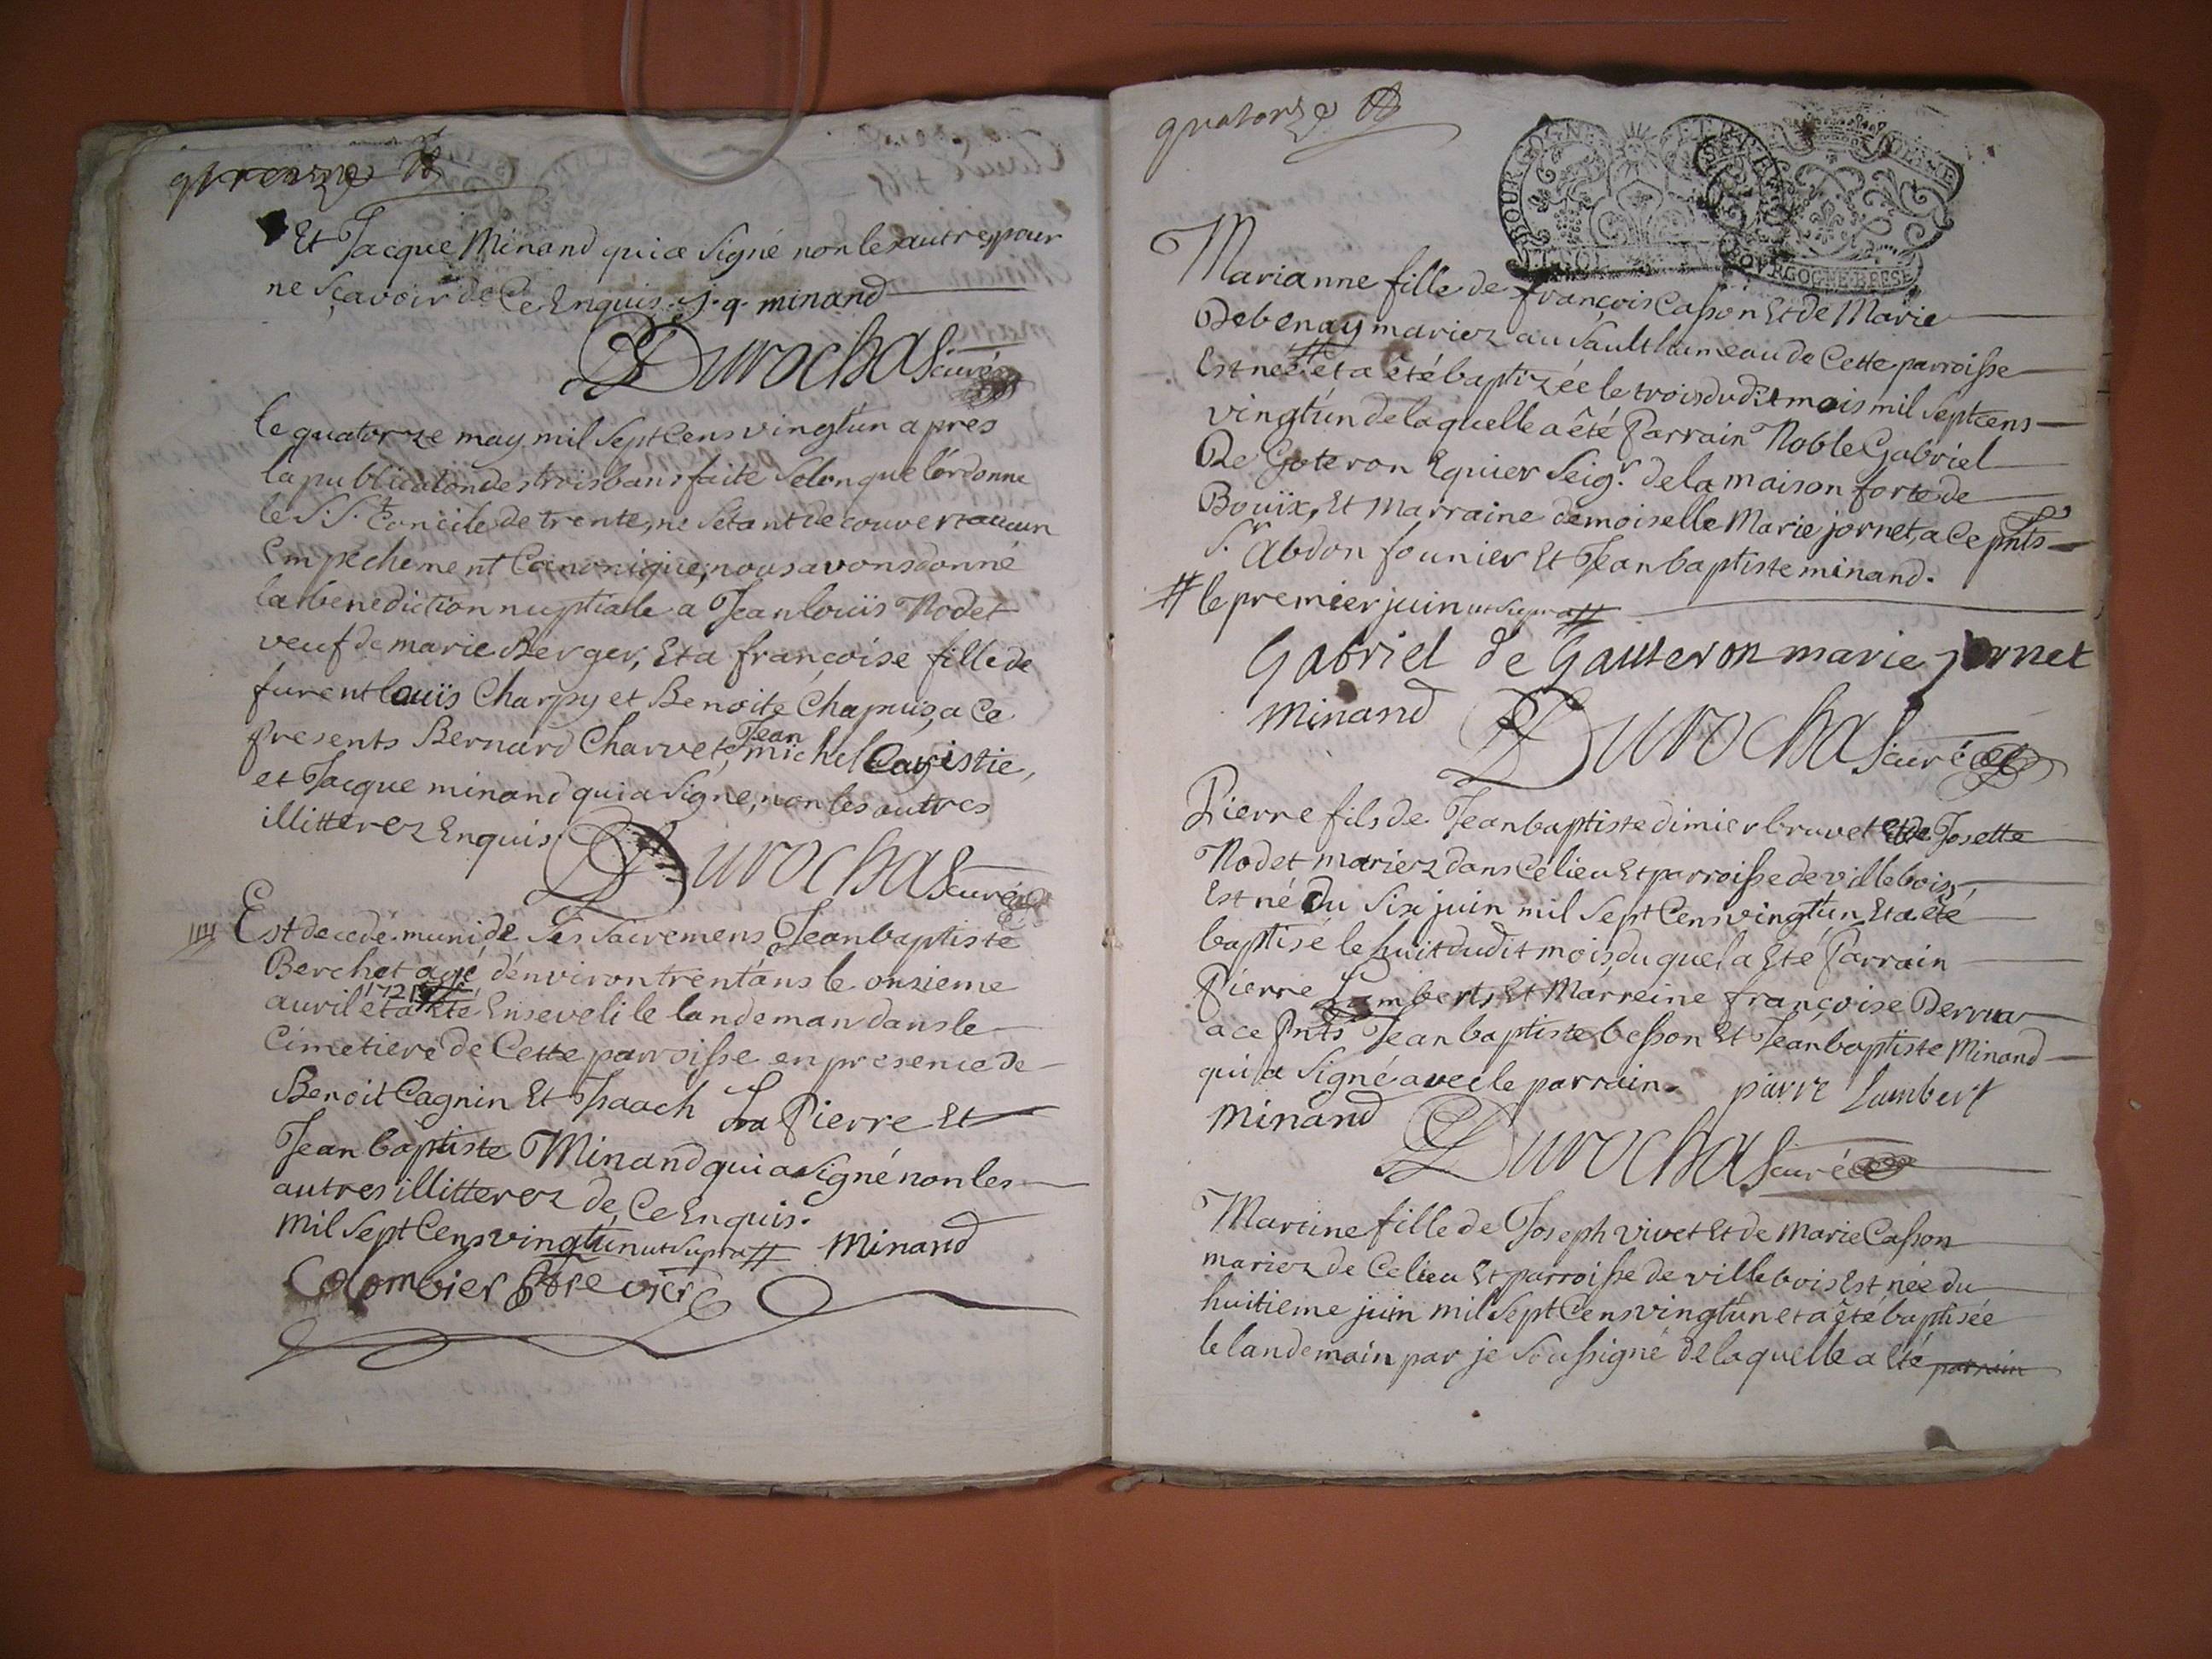 Et Jacque Minand qui a signé non les autres, pour
ne sçavoir de Ce Enquis. j. q. minand
Durochas curé
le quatorze may mil Sept Cens vingt'un apres
la publication des trois bans faite Selon que l'ordonne
le S. St. Concile de trente, ne S'etant decouvert aucun
Empechement Canonique, nous avons donné
la benediction nuptiale a Jean louïs Nodet
veuf de marie Berger, Et a françoise fille de
furent louïs Charpy et Benoite Chapuis, a Ce
Presents Bernard Charvet, Jean michel Cavistie,
et Jacque minand qui a Signé, non les autres
illitterez Enquis
Durochas curé
Est decedé muni de Ses Sacremens Jean baptiste
Berchet agé d'environ trent'ans le onzieme
avril 1721 et a été Enseveli le landeman dans le
Cimetiere de Cette parroisse en presence de
Benoit Cagnin Et Isaach La Pierre Et
Jean baptiste Minand qui a Signé non les
autres illitterez de Ce Enquis.
mil Sept Cens vingt'un ut Supra # Minand
Colombier Ptre vic.
quatorze
Marianne fille de françois Casson Et de Marie
Debenay mariez au Sault hameau de Cette parroisse
Est née # et a été baptizée le trois dudit mois mil Sept cens
vingt'un de laquelle a êté Parrain Noble Gabriel
De Goteron Equier Seigr. de la maison forte de
Bouïx, Et Marraine demoiselle Marie jornet, a Ce pnts
Sr. Abdon founier Et Jean baptiste minand.
# le premier juin ut Supra #
Gabriel de Gauteron marie jornet
Minand Durochas curé
Pierre fils de Jean baptiste dimier bruvet Et de Josette
Nodet mariez dans Ce lieu Et parroisse de villebois,
Est né du Six juin mil Sept Cens vingt'un Et a été
baptisé le huit dudit mois du quel a Eté Parrain
Pierre Lambert, Et Marreine françoise Derrua
a ce Pnts Jean baptiste besson Et Jean baptiste Minand
qui a Signé avec le parrain. piarre Lambert
Minand
Durochas curé
Marine fille de Joseph vivet Et de Marie Casson
mariez de Ce lieu Et parroisse de villebois Est née du
huitieme juin mil Sept Cens vingt'un et a êté baptisée
le landemain par je Soussigné de laquelle a Eté parrain